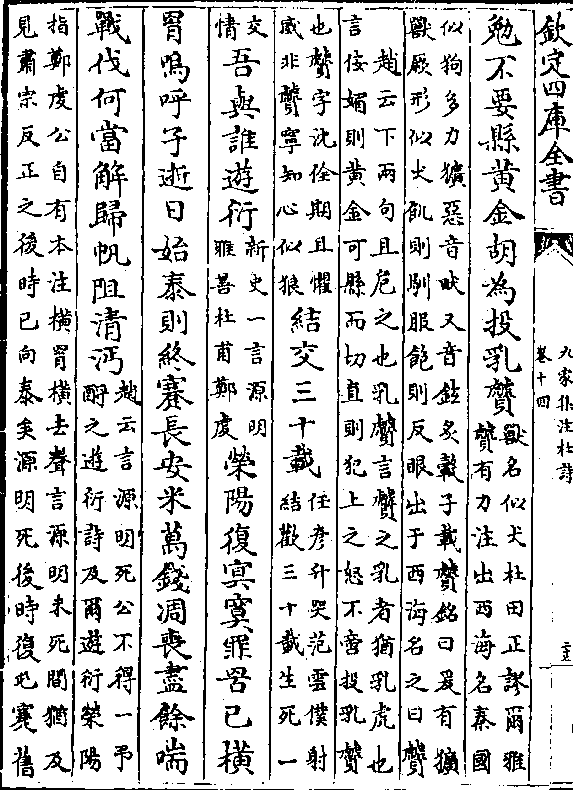 欽定四庫全書
九家集注杜詩
卷十四
勉不要縣黄金胡為投乳贙
獸名似犬杜田正謬爾雅
贙有力注出西海名秦國
似狗多力獷惡音畎又音鉉炙轂子載贙銘曰爰有獷
獸厥形似犬飢則馴服飽則反眼出于西海名之曰贙
趙云下兩句且危之也乳贙言贙之乳者猶乳虎也
言佞媚則黄金可縣而切直則犯上之怒不啻投乳贙
也贙字沈佺期且懼
威非贙寧知心似狼
結交三十載
任彦升哭范雲僕射
結歡三十載生死一
交
情
吾與誰遊衍
新史一言源明
雅善杜甫鄭虔
滎陽復冥寞罪罟已橫
罥嗚呼子逝日始泰則終蹇長安米萬錢凋喪盡餘喘
戰伐何當解歸帆阻清沔
趙云言源明死公不得一予
酹之遊衍詩及爾遊衍滎陽
指鄭虔公自有本注橫罥橫去聲言源明未死間猶及
見肅宗反正之後時已向泰矣源明死後時復屯蹇舊